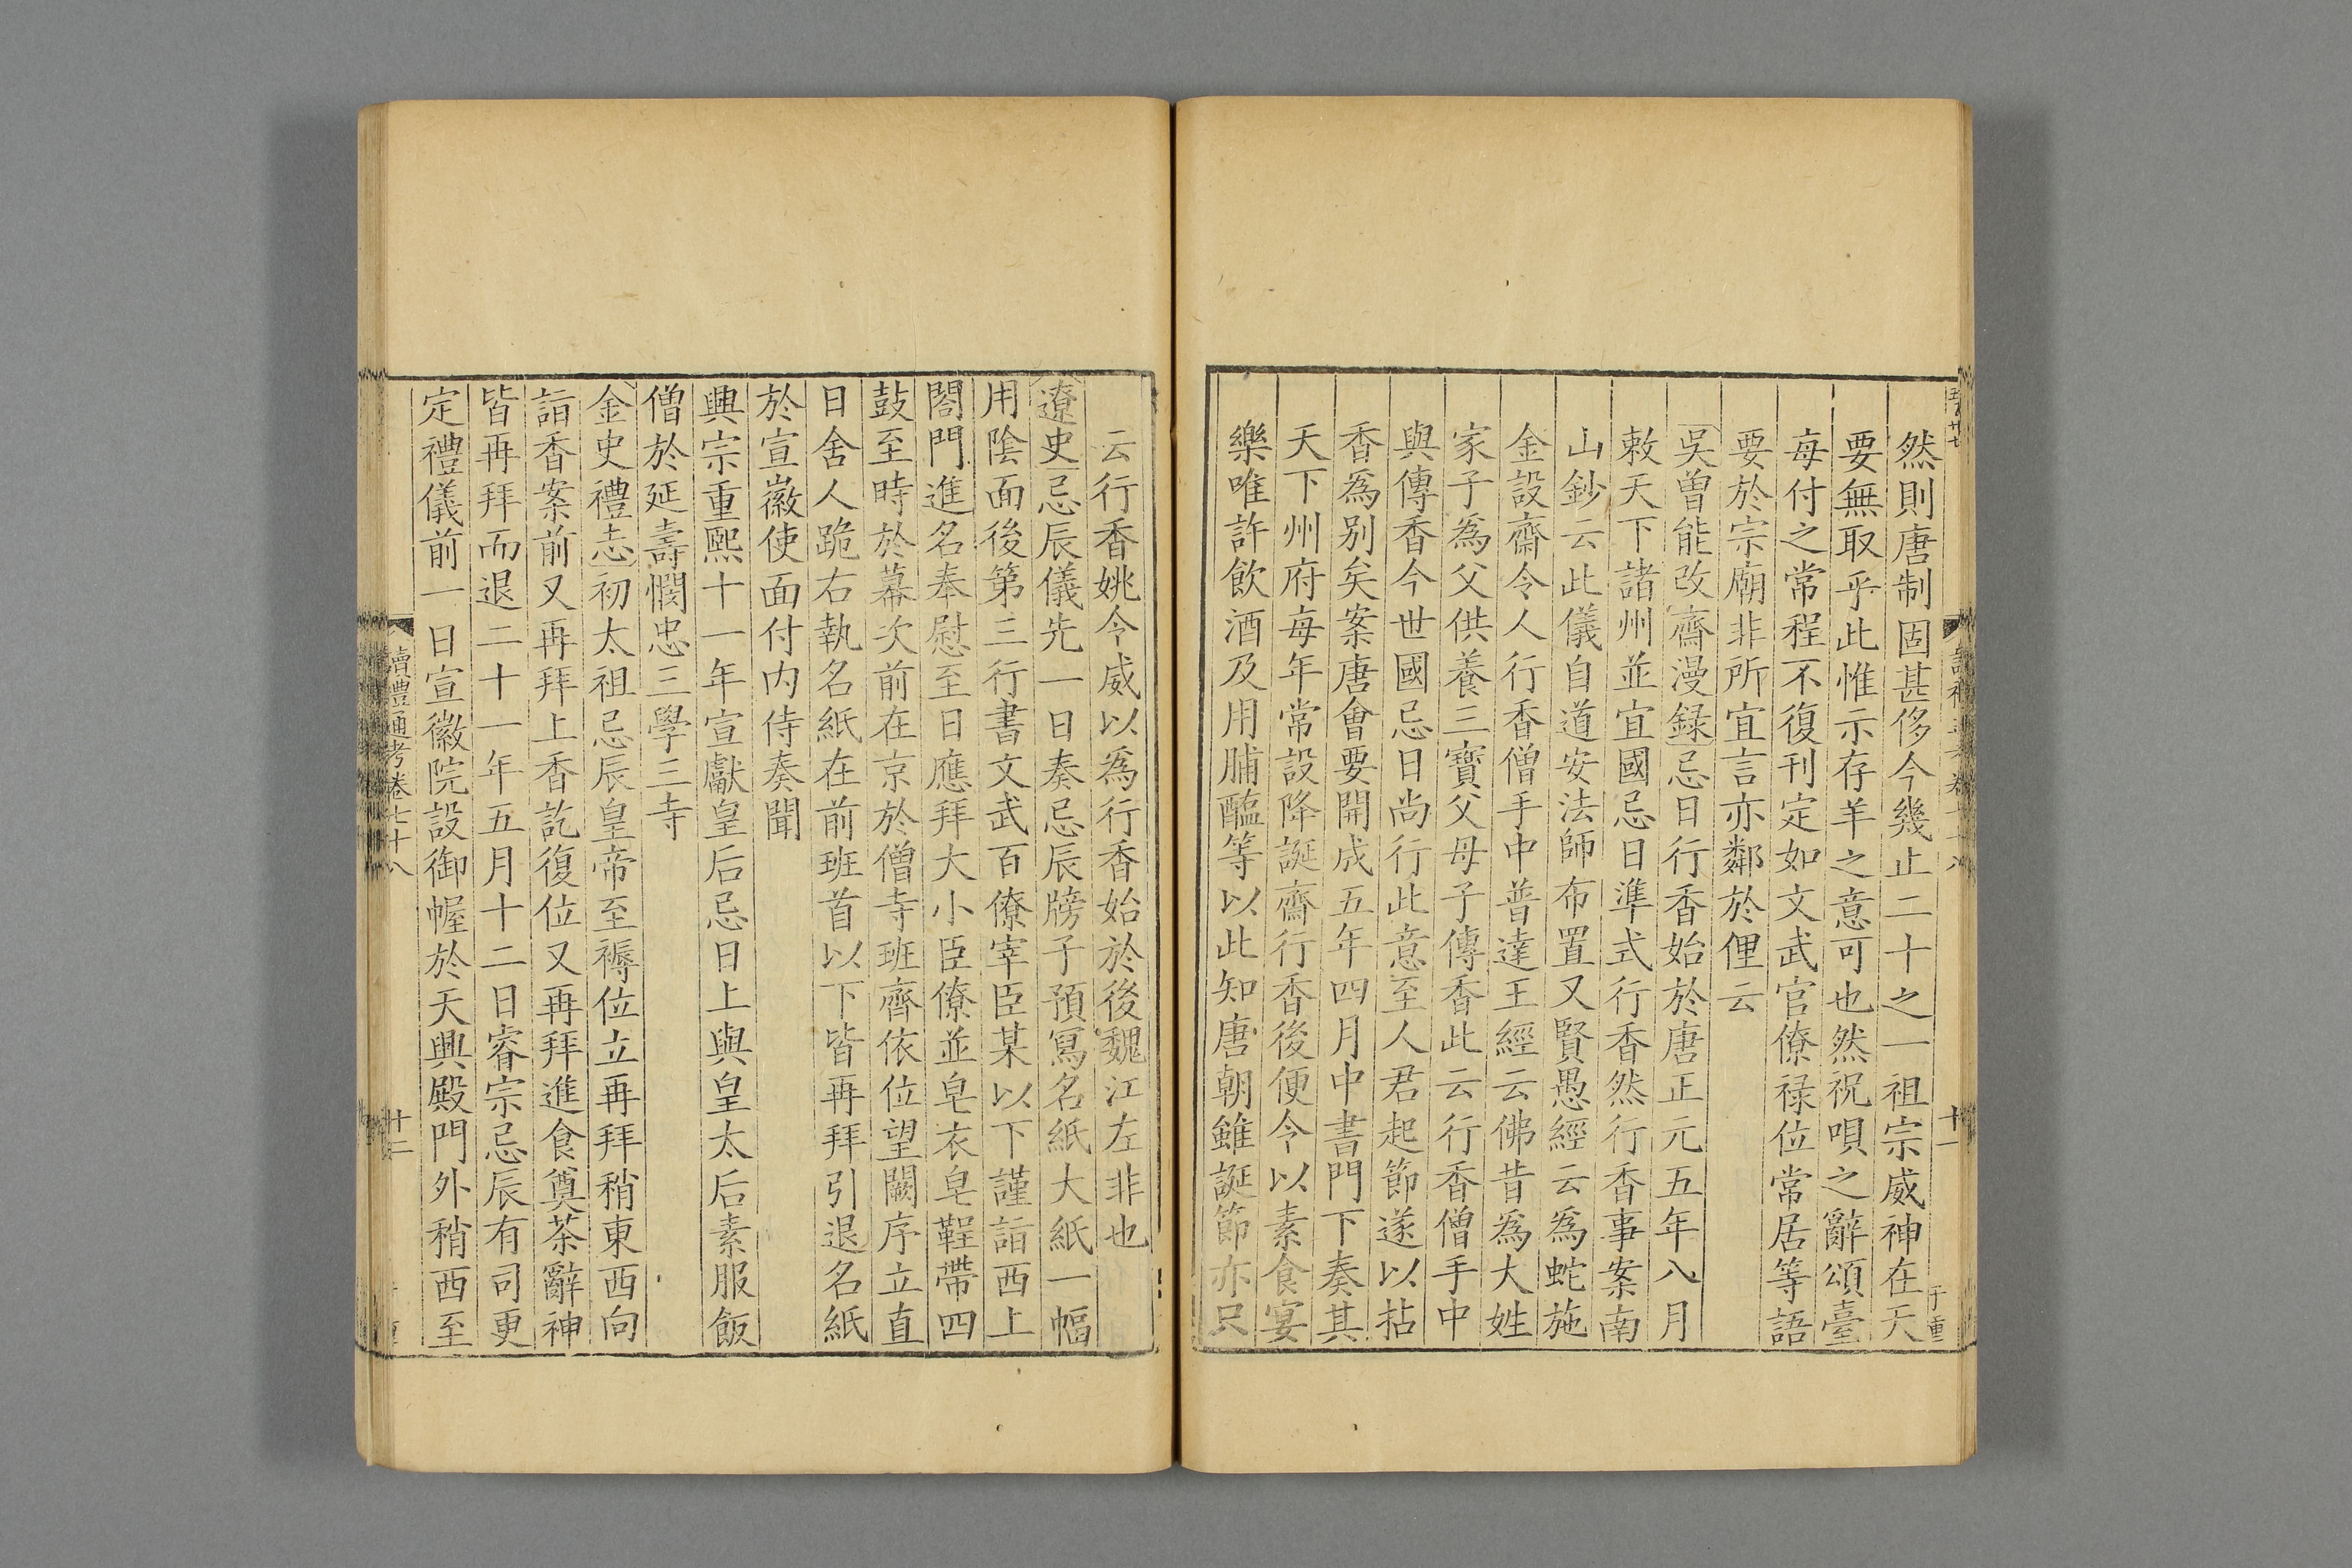 然則唐制固甚侈今幾止二十之一祖宗威神在天
要無取乎此惟示存羊之意可也然祝唄之辭頌臺
每付之常程不復刊定如文武官僚祿位常居等語
要於宗廟非所宜言亦鄰於俚云
吳曾能改齋漫録忌日行香始於唐正元五年八月
敕天下諸州並宜國忌日準式行香然行香事案南
山鈔云此儀自道安法師布置又賢愚經云爲蛇施
金設齋令人行香僧手中普達王經云佛昔爲大姓
家子爲父供養三寶父母子傳香此云行香僧手中
與傳香今世國忌日尚行此意至人君起節遂以拈
香爲别矣案唐會要開成五年四月中書門下奏其
天下州府每年常設降誕齋行香後便令以素食宴
樂唯許飲酒及用脯醢等以此知唐朝雖誕節亦只
十一
于重
云行香姚令威以爲行香始於後魏江左非也
遼史忌辰儀先一日奏忌辰牓子預寫名紙大紙一幅
用陰面後第三行書文武百僚宰臣某以下謹詣西上
閤門進名奉慰至日應拜大小臣僚並皂衣皂鞓帶四
鼓至時於幕次前在京於僧寺班齊依位望闕序立直
日舍人跪右執名紙在前班首以下皆再拜引退名紙
於宣徽使面付内侍奏聞
興宗重熙十一年宣獻皇后忌日上與皇太后素服飯
僧於延壽憫忠三學三寺
金史禮志初太祖忌辰皇帝至褥位立再拜稍東西向
詣香案前又再拜上香訖復位又再拜進食奠茶辭神
皆再拜而退二十一年五月十二日睿宗忌辰有司更
定禮儀前一日宣徽院設御幄於天興殿門外稍西至
讀禮通考卷七十八
十二